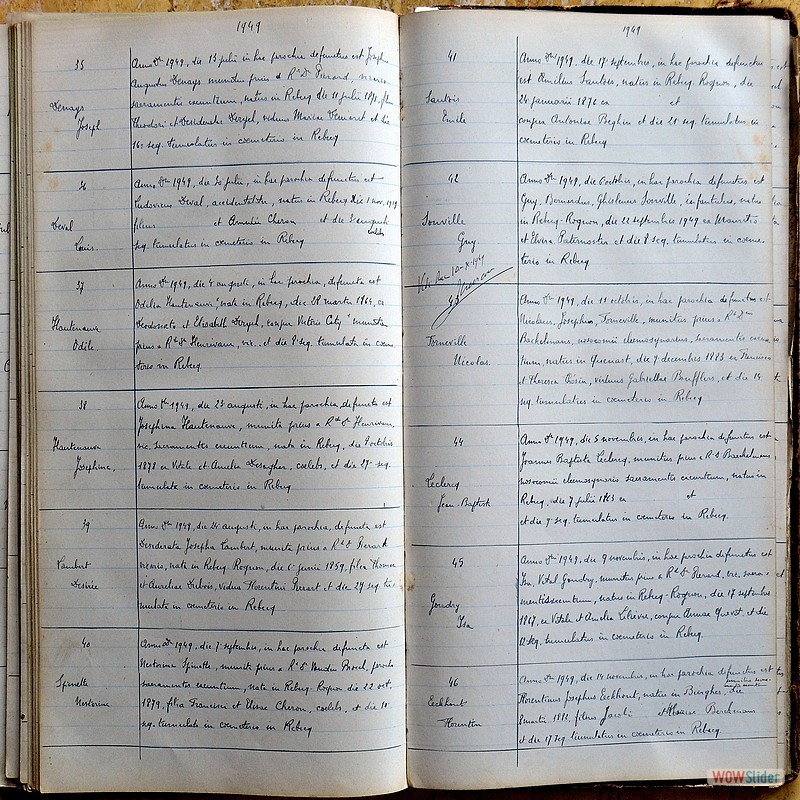 1949
35
Denays
Joseph
Anno Dni 1949, die 13 julii in hac parochia defunctus est Joseph
Augustin Denays munitus prius a Rdo Do Pierard, vicario
sacramentis exeuntium, natus in Rebecq die 11 julii 1872, filius
Theodori et Desiderata Deryck, viduus Maria et die
16a seq. tumulatus in cœmeterio in Rebecq
36
Deval
Louis
Anno Dni 1949, die 30 julii, in hac parochia defunctus est
Ludovicus Deval, accidentaliter, natus in Rebecq die 1 nov. 1919
filius et Amelia Cheron et die 2 augusti
cœlebs
seq. tumulatus in cœmeterio in Rebecq
37
Hautenauve
Odile
Anno Dni 1949, die 4 augusti, in hac parochia, defuncta est
Odilia Hautenauve, nata in Rebecq, die 28 martii 1864, ex
Deodonato et Elisabeth Deryck, conjux Victoris munita
prius a Rdo Do Henrivaux, vic. et die 8 seq. tumulata in cœme
terio in Rebecq
38
Hautenauve
Josephine,
Anno Dni 1949, die 23 augusti, in hac parochia, defuncta est
Josephina Hautenauve, munita prius a Rdo Do Henrivaux
vic. sacramentis exeuntium, nata in Rebecq, die 8 octobris
1878 ex Vitale et Amelia Desaegher, cœlebs, et die 27a seq.
tumulata in cœmeterio in Rebecq
39
Lambert
Désirée
Anno Dni 1949, die 24 augusti, in hac parochia, defuncta est
Desiderata Josepha Lambert, munita prius a Rdo Do Pierard
vicario, nata in Rebecq-Rognon, die 6 junii 1859, filia Thomae
et Aureliae Dubois, vidua Florentini Pierart et die 27 seq. tu
mulata in cœmeterio in Rebecq
40
Spinette
Nestorine
Anno Dni 1949, die 7 septembre, in hac parochia defuncta est
Nestorina Spinette, munita prius a Rdo Do Vanden Bosch, parocho
sacramentis exeuntium, nata in Rebecq Rognon die 22 oct.
1879, filia Francisci et Elisae Cheron, cœlebs, et die 10
seq. tumulata in cœmeterio in Rebecq
1949
41
Sautois
Emile
Anno Dni 1949, die 17 septembris, in hac parochia defunctus
est Æmilius Sautois, natus in Rebecq-Rognon, die
24 januarii 1876 ex et
conjux Antoniae Beghin et die 21 seq. tumulatus in
cœmeterio in Rebecq
42
Jonville
Guy
Anno Dni 1949, die 6 octobris, in hac parochia defunctus est
Guy, Bernardus, Ghislenus Jonville, infantulus, natus
in Rebecq-Rognon, die 22 septembre 1949 ex Mauritio
et Elvira Paternoster et die 8 seq. tumulatus in cœme
terio in Rebecq
10-X-1949
43
Torneville
Nicolas
Anno Dni 1949, die 11 octobris, in hac parochia defunctus est
Nicolaus, Josephus, Torneville, munitus prius a Rdo Do
Baekelmans, nosocomii elemosynarius, sacramentis exeun
tium, natus in Quenast, die 7 decembris 1883 ex Francisco
et Theresia viduus Gabriellae Boufflers, et die 15
seq. tumulatus in cœmeterio in Rebecq
44
Leclercq
Jean-Baptiste
Anno Dni 1949, die 5 novembris, in hac parochia defunctus est
Joannes Baptista Leclercq, munitus prius a R D Baekelmans
nosocomii elemosynario sacramentis exeuntium, natus in
Rebecq, die 7 julii 1863 ex et
et die 9 seq. tumulatus in cœmeterio in Rebecq
45
Goudry
Isa
Anno Dni 1949, die 9 novembris, in hac parochia defunctus est
Isa, Vital Goudry, munitus prius a Rdo Do Pierard, vic. sacra
mentis exeuntium, natus in Rebecq-Rognon, die 17 septembre
1867, ex Vitale et Amelia Lelièvre, conjux Annae Quevot, et die
12 seq. tumulatus in cœmeterio in Rebecq.
46
Eeckhout
Florentin
Anno Dni 1949, die 14 novembris, in hac parochia defunctus est
Florentinus Josephus Eeckhout, natus in Bierghes, die
8 martii 1881, filius Jacobi et Mariae Berckmans
et die 17 seq. tumulatus in cœmeterio in Rebecq.
WOWSlider